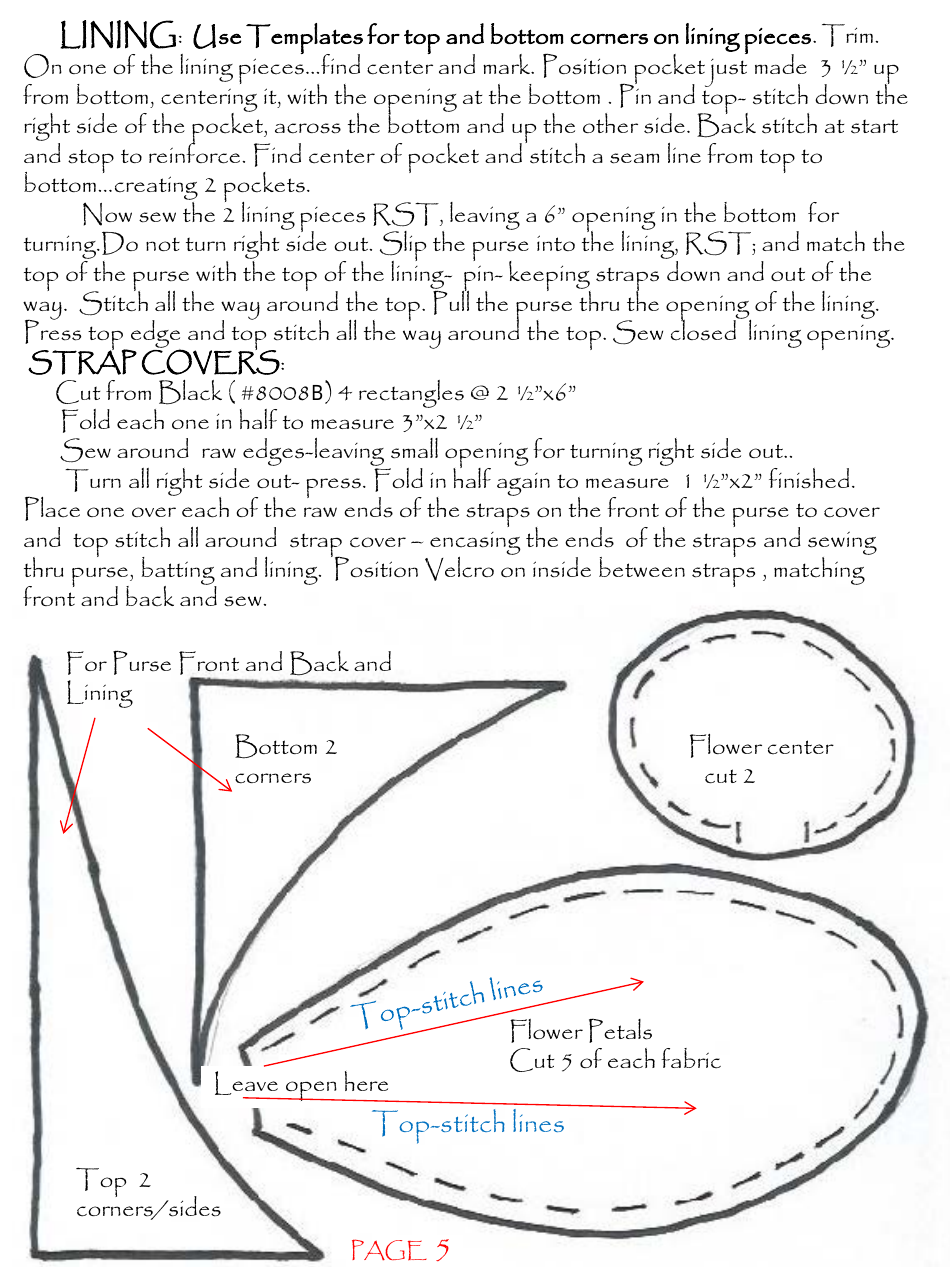 LINING: Use Templates for top and bottom corners on lining pieces. Trim.
On one of the lining pieces...find center and mark. Position pocket just made 3 ½” up
from bottom, centering it, with the opening at the bottom . Pin and top- stitch down the
right side of the pocket, across the bottom and up the other side. Back stitch at start
and stop to reinforce. Find center of pocket and stitch a seam line from top to
bottom...creating 2 pockets.
Now sew the 2 lining pieces RST, leaving a 6” opening in the bottom for
turning.Do not turn right side out. Slip the purse into the lining, RST; and match the
top of the purse with the top of the lining- pin- keeping straps down and out of the
way. Stitch all the way around the top. Pull the purse thru the opening of the lining.
Press top edge and top stitch all the way around the top. Sew closed lining opening.
STRAP COVERS:
Cut from Black ( #8008B) 4 rectangles @ 2 ½”x6”
Fold each one in half to measure 3”x2 ½”
Sew around raw edges-leaving small opening for turning right side out..
Turn all right side out- press. Fold in half again to measure 1 ½”x2” finished.
Place one over each of the raw ends of the straps on the front of the purse to cover
and top stitch all around strap cover – encasing the ends of the straps and sewing
thru purse, batting and lining. Position Velcro on inside between straps , matching
front and back and sew.
For Purse Front and Back and
Lining
Bottom 2
corners
Flower center
cut 2
Top-stitch lines
Flower Petals
Cut 5 of each fabric
Leave open here
Top-stitch lines
Top 2
corners/sides
PAGE 5